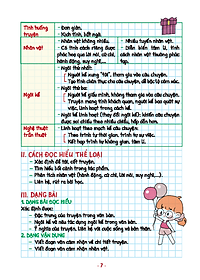 Tình huống truyện
- Đơn giản.
- Kịch tính, bất ngờ.
Nhân vật
- Nhân vật không nhiều.
- Có tính cách riêng được phác họa qua lời nói, cử chỉ, hành động, suy nghĩ,...
- Nhiều tuyến nhân vật.
- Diễn biến tâm lí, tính cách nhân vật thường phức tạp.
Ngôi kể
- Ngôi thứ nhất:
+ Người kể xưng "tôi", tham gia vào câu chuyện.
+ Tạo tính chân thực cho câu chuyện, dễ bộc lộ cảm xúc.
- Ngôi thứ ba:
+ Người kể giấu mình, không tham gia vào câu chuyện.
+ Truyện mang tính khách quan, người kể bao quát sự việc, linh hoạt trong cách kể.
- Ngôi kể linh hoạt (thay đổi ngôi kể): khiến câu chuyện được soi chiếu theo nhiều chiều, hấp dẫn hơn.
Nghệ thuật trần thuật
- Linh hoạt theo mạch kể câu chuyện.
+ Theo trình tự thời gian, trình tự sự việc.
+ Kết hợp trình tự không gian, tâm lí.
II. CÁCH ĐỌC HIỂU THỂ LOẠI
- Xác định đề tài, cốt truyện.
- Tìm hiểu bối cảnh trong tác phẩm.
- Phân tích nhân vật (hành động, cử chỉ, lời nói, suy nghĩ,...).
- Liên hệ, rút ra bài học.
III. DẠNG BÀI
1. DẠNG BÀI ĐỌC HIỂU
Xác định được:
- Đặc trưng của truyện trong văn bản.
- Ngôi kể và nêu tác dụng ngôi kể trong văn bản.
- Ý nghĩa của truyện. Liên hệ với cuộc sống và bản thân.
2. DẠNG VẬN DỤNG
- Viết đoạn văn cảm nhận về chi tiết truyện.
- Viết đoạn văn cảm nhận về nhân vật.
- 7 -